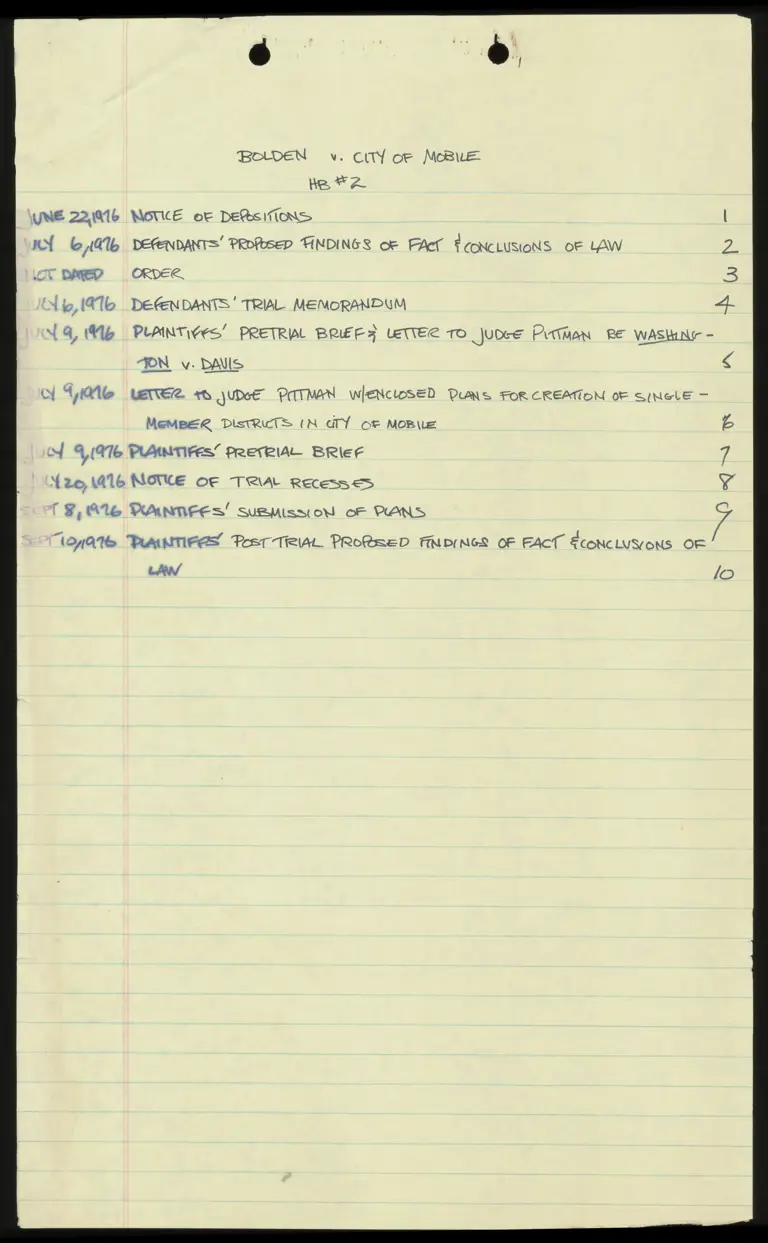 BOLDEN v. CITY OF MOBILE
HB #2
JUNE 22, 1976 NOTICE OF DEPOSITIONS 1
JULY 6, 1976 DEFENDANTS' PROPOSED FINDINGS OF FACT & CONCLUSIONS OF LAW 2
NOT DATED ORDER 3
JULY 6, 1976 DEFENDANTS' TRIAL MEMORANDUM 4
JULY 9, 1976 PLAINTIFFS' PRETRIAL BRIEF & LETTER TO JUDGE PITTMAN RE WASHING-
TON v. DAVIS 5
JULY 9, 1976 LETTER TO JUDGE PITTMAN W/ENCLOSED PLANS FOR CREATION OF SINGLE-
MEMBER DISTRICTS IN CITY OF MOBILE 6
JULY 9, 1976 PLAINTIFFS' PRETRIAL BRIEF 7
JULY 20, 1976 NOTICE OF TRIAL RECESSES 8
SEPT 8, 1976 PLAINTIFFS' SUBMISSION OF PLANS 9
SEPT 10, 1976 PLAINTIFFS' POST TRIAL PROPOSED FINDINGS OF FACT & CONCLUSIONS OF
LAW 10